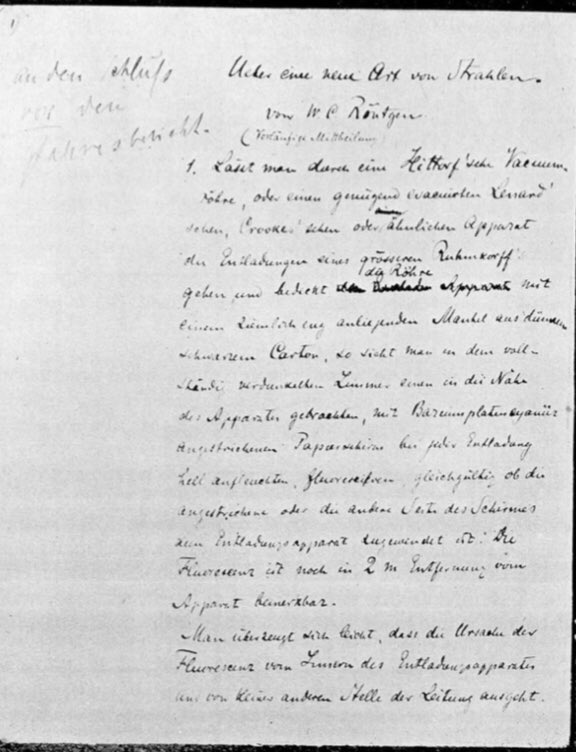 an den Schluss
vor den
Jahresbericht.
Ueber eine neue Art von Strahlen.
von W. C. Röntgen
(Vorläufige Mittheilung)
1. Lässt man durch eine Hittorf'sche Vacuum-
röhre, oder einen genügend evacuirten Lenard'
schen, Crookes'schen oder ähnlichen Apparat
die Entladungen eines grösseren Ruhmkorff's
die Röhre
gehen und bedeckt Apparat mit
einem ziemlich eng anliegenden Mantel aus dünnem
schwarzem Carton, so sieht man in dem voll-
ständig verdunkelten Zimmer einen in die Nähe
des Apparates gebrachten, mit Bariumplatincyanür
angestrichenen Papierschirm bei jeder Entladung
hell aufleuchten, fluoresciren, gleichgültig ob die
angestrichene oder die andere Seite des Schirmes
dem Entladungsapparat zugewendet ist. Die
Fluorescenz ist noch in 2 m Entfernung vom
Apparat bemerkbar.
Man überzeugt sich leicht, dass die Ursache der
Fluorescenz vom Innern des Entladungsapparates
und von keiner anderen Stelle der Leitung ausgeht.